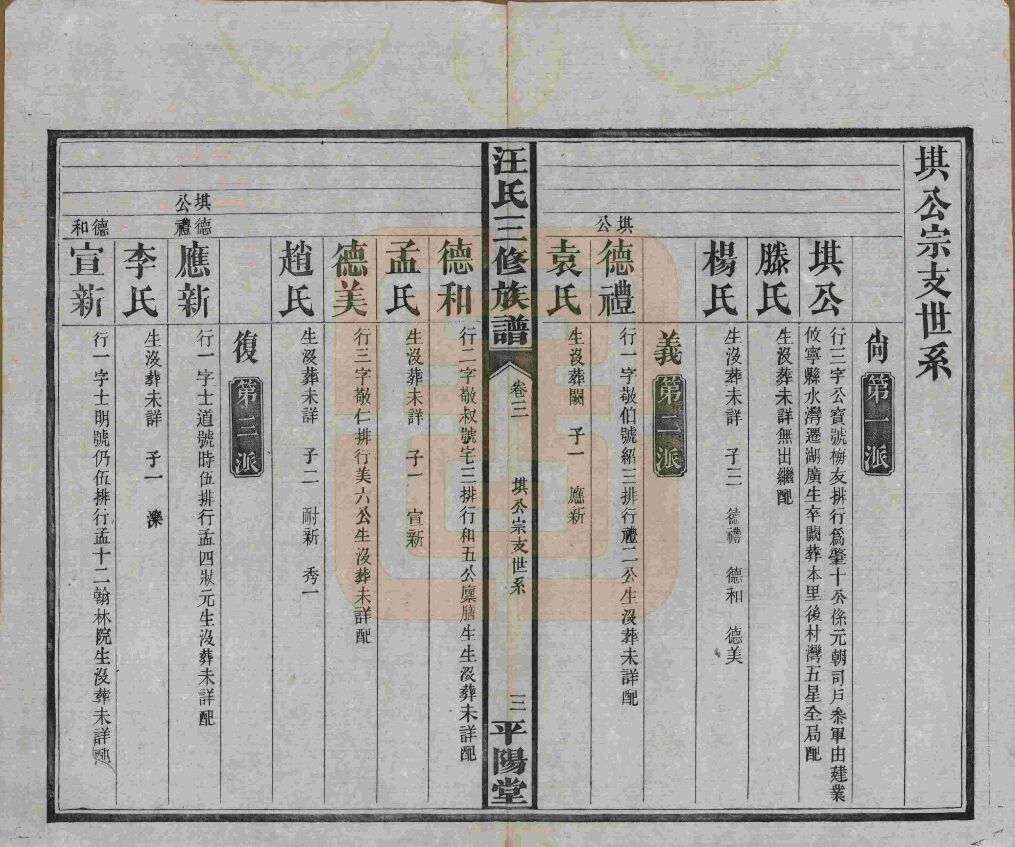 琪公宗支世系
尙 第一派
琪公
行三字公寶號梅友排行爲肇十公係元朝司戶叅軍由建業
攸寧縣水灣遷湖廣生卒闕葬本里後村灣五星全局配
滕氏
生沒葬未詳無出繼配
楊氏
生沒葬未詳 子三 德禮 德和 德美
義 第二派
琪公
德禮
行一字敬伯號紹三排行禮二公生沒葬未詳配
袁氏
生沒葬闕 子一 應新
汪氏三修族譜 卷三 琪公宗支世系 三 平陽堂
德和
行二字敬叔號宅三排行和五公廩膳生生沒葬未詳配
孟氏
生沒葬未詳 子一 宣新
德美
行三字敬仁排行美六公生沒葬未詳配
趙氏
生沒葬未詳 子二 耐新 秀一
復 第三派
琪公
德禮
應新
行一字士道號時伍排行孟四狀元生沒葬未詳配
李氏
生沒葬未詳 子一 濼
德和
宣新
行一字士明號仍伍排行孟十二翰林院生沒葬未詳配